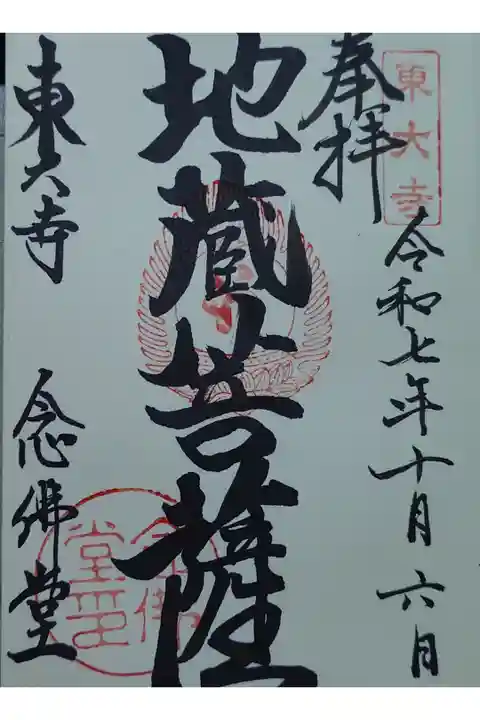 東大寺
奉拝
令和七年十月六日
地蔵菩薩
東大寺 念佛堂
念佛
堂印